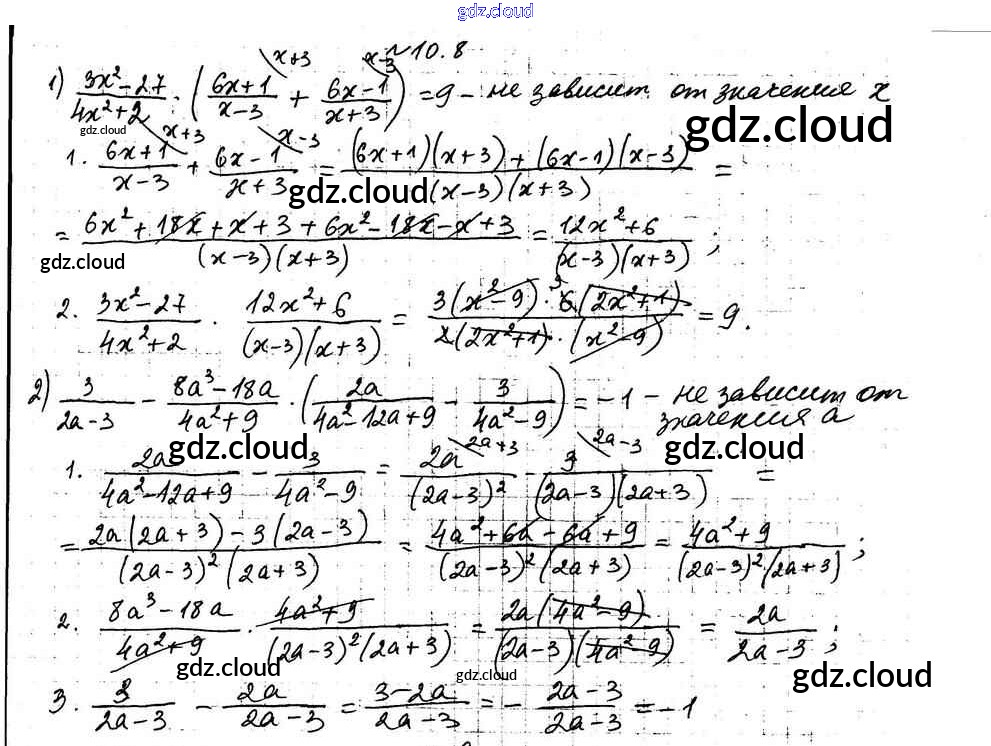 gdz.cloud
№10.8
1) (3x²-27)/(4x²+2) · ((6x+1)/(x-3) + (6x-1)/(x+3)) = 9 - не зависит от значения x
x+3 x-3
gdz.cloud gdz.cloud
x+3 x-3
1. (6x+1)/(x-3) + (6x-1)/(x+3) = ((6x+1)(x+3)+(6x-1)(x-3))/((x-3)(x+3)) =
gdz.cloud
= (6x²+18x+x+3+6x²-18x-x+3)/((x-3)(x+3)) = (12x²+6)/((x-3)(x+3));
gdz.cloud gdz.cloud
2. (3x²-27)/(4x²+2) · (12x²+6)/((x-3)(x+3)) = (3(x²-9)·6(2x²+1))/(2(2x²+1)·(x²-9)) = 9.
3
2) 3/(2a-3) - (8a³-18a)/(4a²+9) · (2a/(4a²-12a+9) - 3/(4a²-9)) = -1 - не зависит от
значения a
gdz.cloud gdz.cloud gdz.cloud
2a+3 2a-3
1. 2a/(4a²-12a+9) - 3/(4a²-9) = 2a/(2a-3)² - 3/((2a-3)(2a+3)) =
= (2a(2a+3)-3(2a-3))/((2a-3)²(2a+3)) = (4a²+6a-6a+9)/((2a-3)²(2a+3)) = (4a²+9)/((2a-3)²(2a+3));
2. (8a³-18a)/(4a²+9) · (4a²+9)/((2a-3)²(2a+3)) = (2a(4a²-9))/((2a-3)(4a²-9)) = 2a/(2a-3);
gdz.cloud gdz.cloud gdz.cloud
3. 3/(2a-3) - 2a/(2a-3) = (3-2a)/(2a-3) = -(2a-3)/(2a-3) = -1